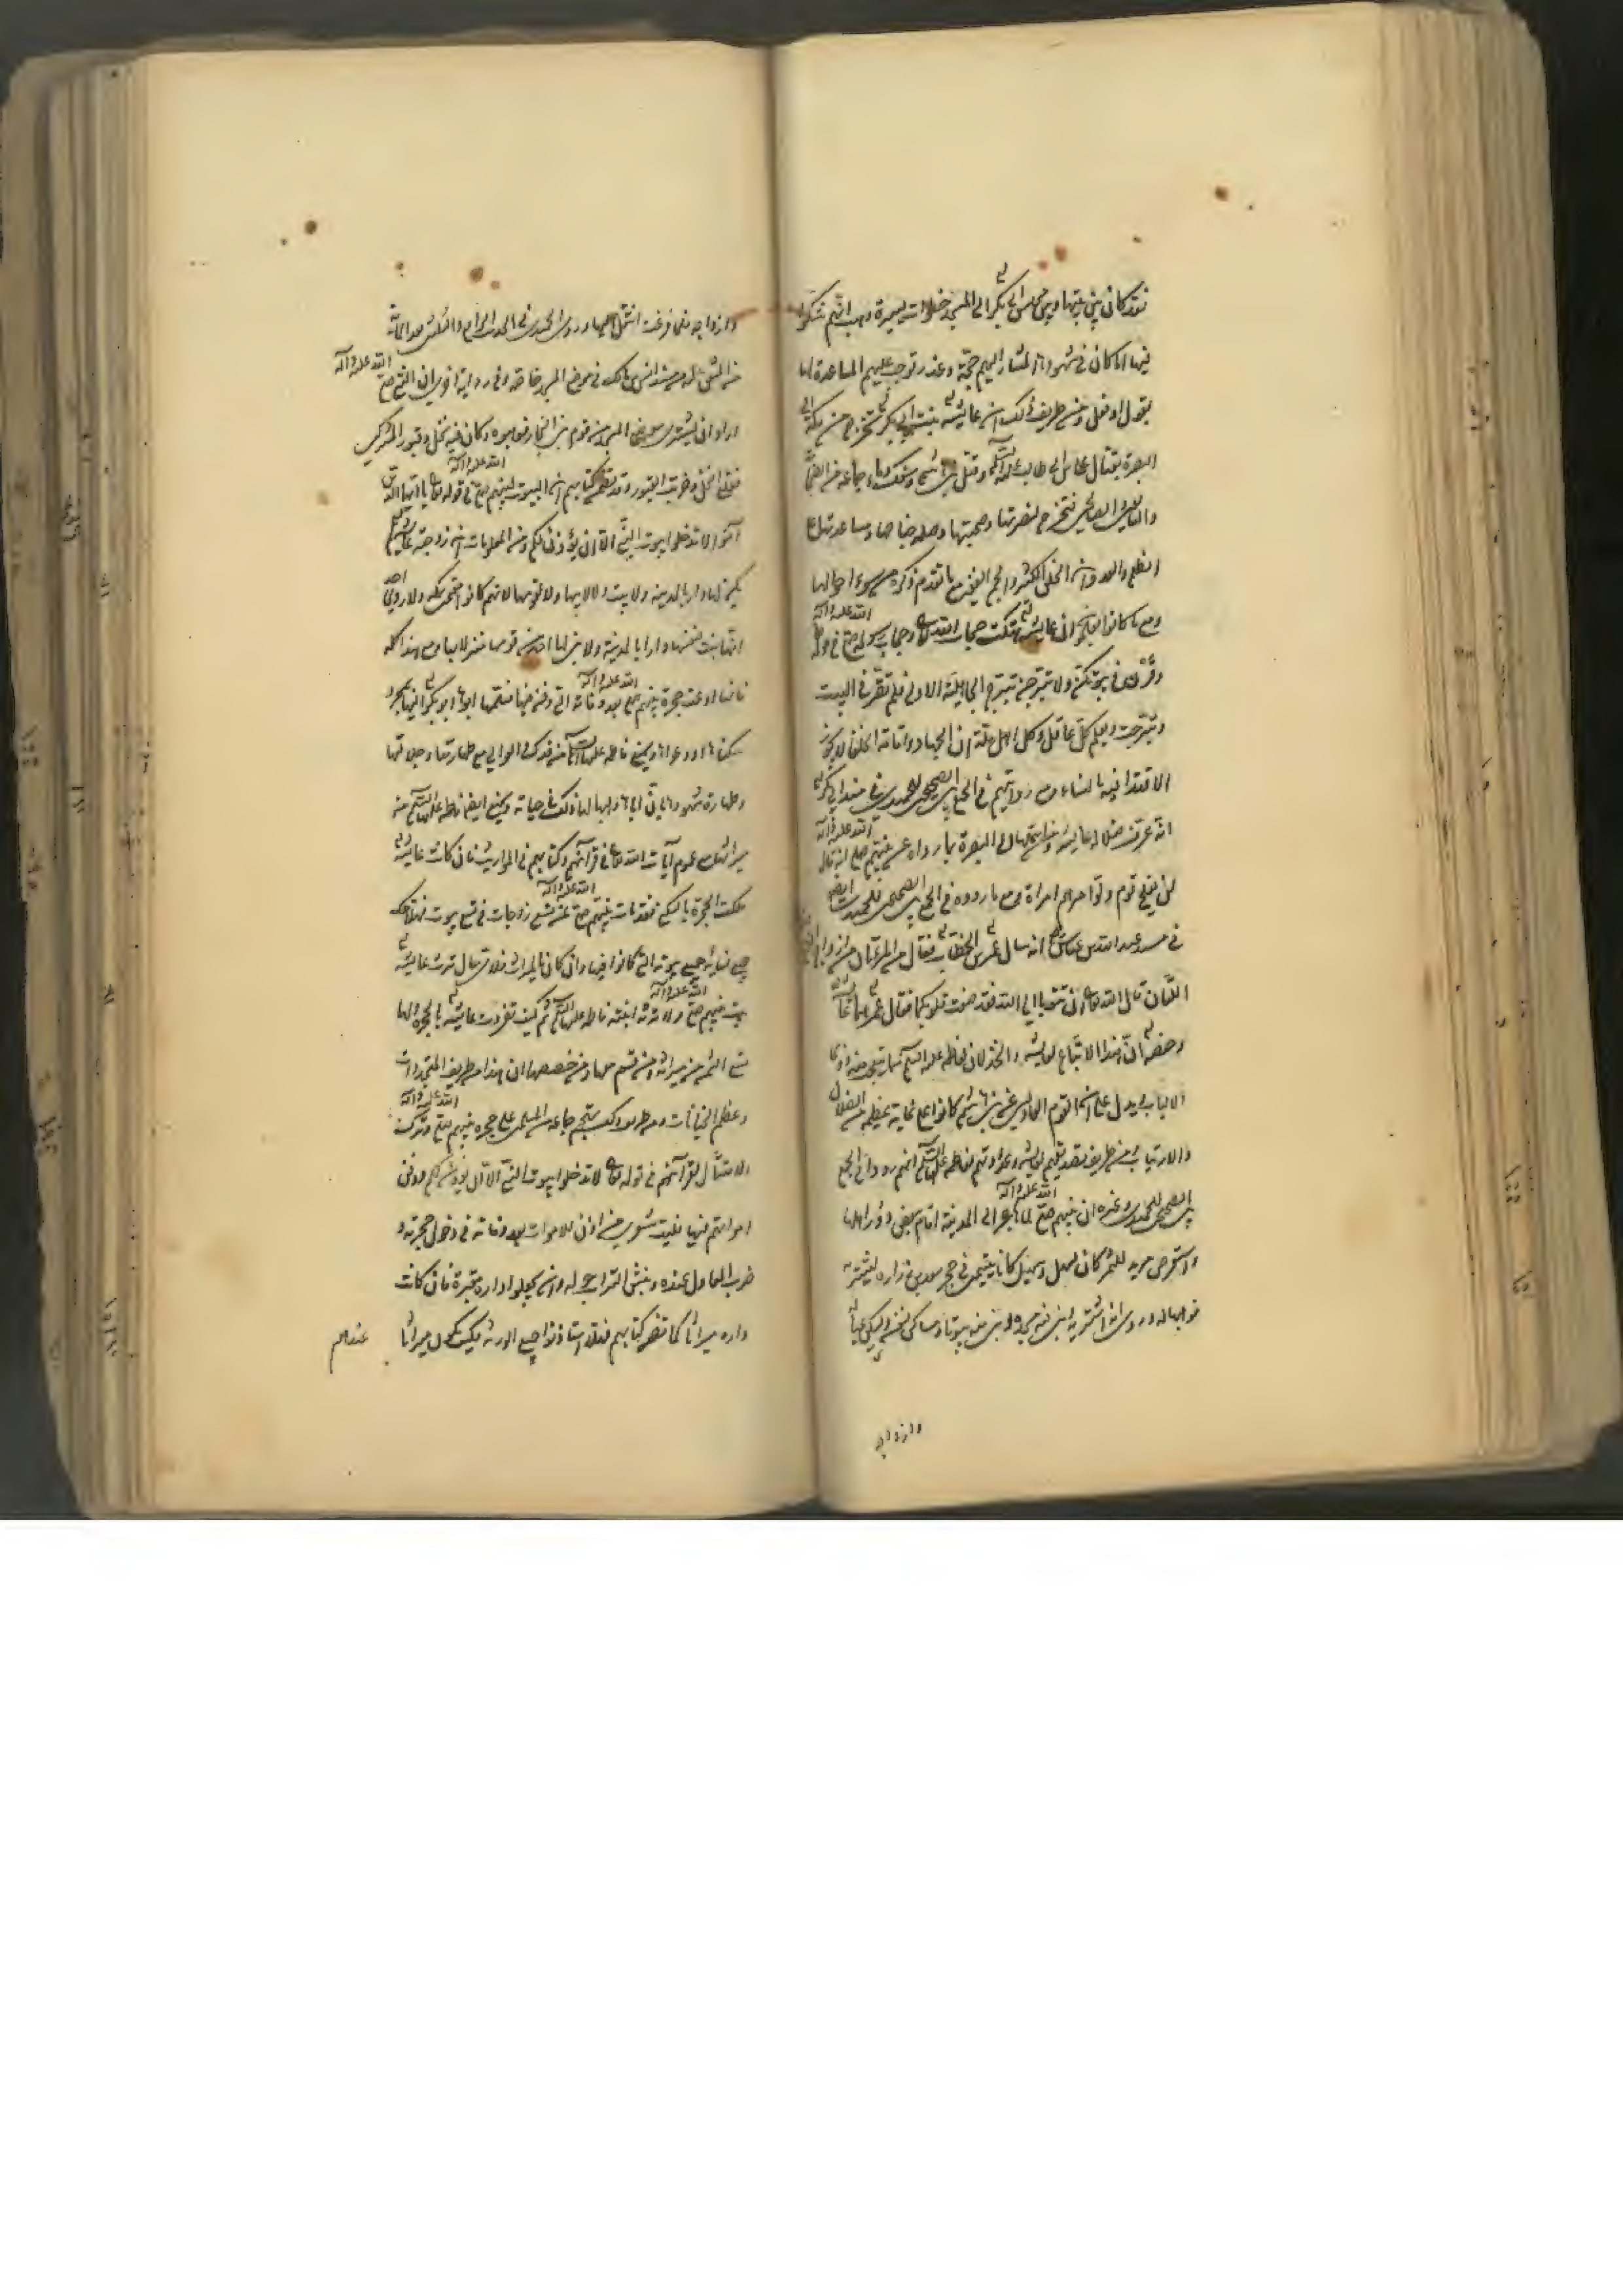 فقد كان بين بيتها وبين مجلس أبي بكر الى المسجد خطوات يسيرة وهب انهم شكوا
فيها اما كان في شهودها المشار اليهم حجة وعذر توجب عليهم المساعدة لها
بقول او فعل ومن طريف ذلك ان عايشة بنت ابي بكر تخرج من مكة الى
البصرة بقتال علي بن ابي طالب عليه السلم وقتل بني هاشم وسفك دماء جماعة من الصحابة
والتابعين الصالحين فتخرج لنصرتها وصحبتها ومساعدتها على
الظلم والعدوان الخلق الكثير والجم الغفير مع ما تقدم ذكره من سوء احوالها
ومع ما كانوا يعلمون ان عايشة هتكت حجاب الله تعالى وحجاب رسوله صلى الله عليه وآله في قوله
وقرن في بيوتكن ولا تبرجن تبرج الجاهلية الاولى فلم تقر في البيت
وتبرجت ويعلم كل عاقل وكل اهل ملة ان الجهاد واقامة الخلفاء لا يجوز
الاقتداء فيه بالنساء ومع روايتهم في الجمع بين الصحيحين للحميدي في مسند ابي بكرة
انه عرف ضلال عايشة واتباعها الى البصرة بما رواه عن نبيهم صلى الله عليه وآله انه قال
لن يفلح قوم ولوا امرهم امراة ومع ما رووه في الجمع بين الصحيحين للحميدي ايضا
في مسند عبد الله بن عباس انه سال عمر بن الخطاب فقال من المراتان من ازواج النبي
اللتان قال الله تعالى ان تتوبا الى الله فقد صغت قلوبكما فقال عمر هما عايشة
وحفصة ان هذا الاتباع لعايشة والخذلان لفاطمة عليها السلم مما يتعجب منه ذوو
الالباب ويدل على ان القوم العادلين عن بني هاشم كانوا على غاية عظيمة من الضلال
والارتياب ومن طريف تعصبهم لعايشة وعداوتهم لفاطمة عليها السلم انهم رووا في الجمع
بين الصحيحين للحميدي وغيره ان نبيهم صلى الله عليه وآله لما هاجر الى المدينة اقام ببعض دور اهلها
واستعرض مربد للتمر كان لسهل وسهيل كانا يتيمين في حجر سعد بن زرارة ليشتريه
فوهباه له وروي انه اشتراه ابنى فيه مسجده وبنى فيه بيوتا ومساكن لنفسه ليسكن عياله
وازواجه
وازواجه فيها ففرغت انتقل اليها وروى الحميدي في الحديث الحادي والثلثين بعد المائة
من المتفق عليه من مسند انس بن مالك في موضع المسجد خاصة وفي رواية اخرى ان النبي صلى الله عليه وآله
اراد ان يشتري موضع المسجد من قوم بني النجار فوهبوه وكان فيه نخل وقبور المشركين
فقلع النخل وخربت القبور وقد تضمن كتابهم ان البيوت لنبيهم صلى الله عليه وآله في قوله تعالى يا ايها الذين
آمنوا لا تدخلوا بيوت النبي الا ان يؤذن لكم ومن المعلومات ان زوجته عايشة لم
يكن لها دار بالمدينة ولا بيت ولا لابيها ولا لقومها لانهم كانوا بمكة ولا روى احد
انها بنت لنفسها دارا بالمدينة ولا بنى لها احد من قومها منزلا بها ومع هذا كله
فانها ادعت حجرة نبيهم صلى الله عليه وآله بعد وفاته التي دفن فيها فسلمها ابوها ابو بكر اليها بمجرد
سكناها او دعواها ويمنع فاطمة عليها السلم من فدك والعوالي مع طهارتها وجلالتها
وطهارة شهودها بان اباها وهبها لها ذلك في حياته ويمنع ايضا فاطمة عليها السلم من
ميراثها مع عموم آيات الله تعالى في قرآنهم وكتابهم في المواريث فان كانت عايشة
ملكت الحجرة بالسكنى فقد مات نبيهم صلى الله عليه وآله عن تسع زوجات في تسع بيوت فهلا ملك
جميع نسائه جميع بيوته التي كانوا فيها وان كان بالميراث فلاي حال ترث عايشة
بيت نبيهم صلى الله عليه وآله ولا ترثه ابنته فاطمة عليها السلم ثم كيف تفردت عايشة بالحجرة ولها
تسع الثمن من ميراثه ومن قسم لها ومن خصصها ان هذا من طريف المتجددات
وعظيم الخيانات ومن طريف ذلك تهجم جماعة المسلمين على حجرة نبيهم صلى الله عليه وآله وتركت
الامتثال لقرآنهم في قوله تعالى لا تدخلوا بيوت النبي الا ان يؤذن لكم ودفن
امواتهم فيها فليت شعري من اذن للاموات بعد وفاته في دخول حجرته و
ضرب المعاول عنده ونبش التراب حوله وان يجعلوا داره مقبرة فان كانت
داره ميراثا كما تضمن كتابهم فهلا استاذنوا جميع الورثة فكيف تكون ميراثا عندهم